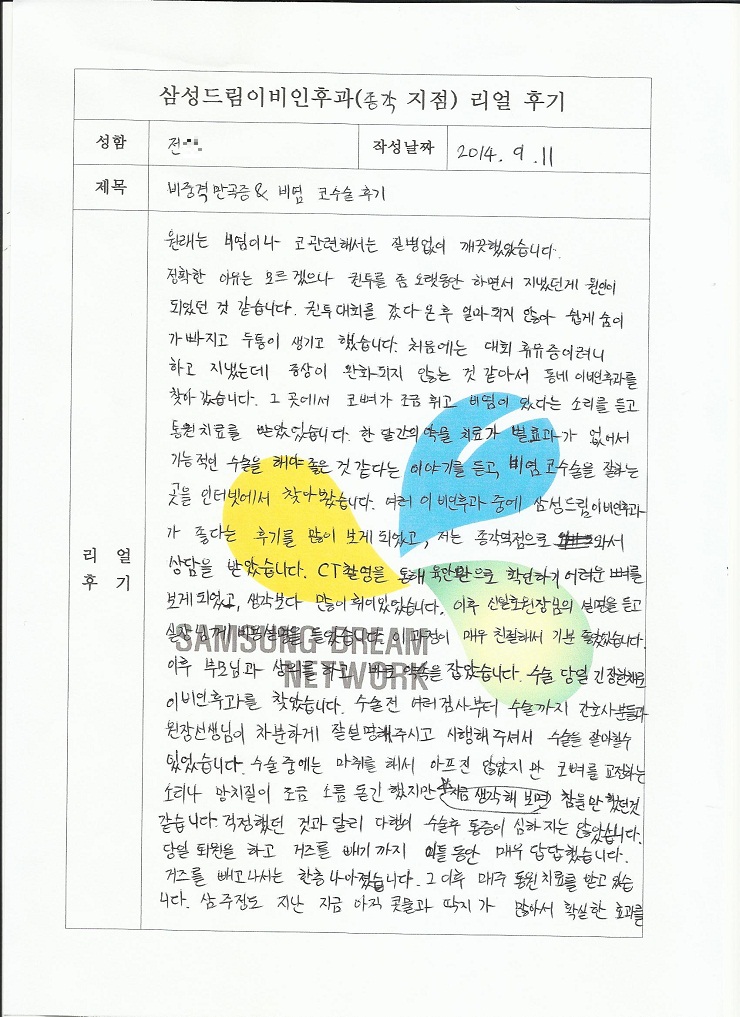 삼성드림이비인후과(종각 지점) 리얼 후기
성함 전 작성날짜 2014. 9. 11
제목 비중격만곡증 & 비염 코수술 후기
리얼 후기
원래는 비염이나 코관련해서는 질병없이 깨끗했었습니다.
정확한 이유는 모르겠으나 권투를 좀 오랫동안 하면서 지냈던게 원인이
되었던 것 같습니다. 권투대회를 갔다 온 후 얼마 되지 않아 쉽게 숨이
가빠지고 두통이 생기고 했습니다. 처음에는 대회 휴유증이려니
하고 지냈는데 증상이 완화되지 않는 것 같아서 동네 이비인후과를
찾아 갔습니다. 그 곳에서 코뼈가 조금 휘고 비염이 있다는 소리를 듣고
통원치료를 받았었습니다. 한 달간의 약물 치료가 별효과가 없어서
기능적인 수술을 해야 좋은 것 같다는 이야기를 듣고, 비염 코수술을 잘하는
곳을 인터넷에서 찾아봤습니다. 여러 이비인후과 중에 삼성드림이비인후과
가 좋다는 후기를 많이 보게 되었고, 저는 종각역점으로 와서
상담을 받았습니다. CT촬영을 통해 육안만으로 확인하기 어려운 뼈를
보게 되었고, 생각보다 많이 휘어있었습니다. 이후 신원장님의 설명을 듣고
실장님께 비용설명을 들었습니다. 이 과정이 매우 친절해서 기분 좋았었습니다.
이후 부모님과 상의를 하고 바로 약속을 잡았습니다. 수술 당일 긴장한채로
이비인후과를 찾았습니다. 수술전 여러검사부터 수술까지 간호사분들과
원장선생님이 차분하게 잘설명해주시고 시행해 주셔서 수술을 잘마칠수
있었습니다. 수술 중에는 마취를 해서 아프진 않았지만 코뼈를 교정하는
소리나 망치질이 조금 소름 돋긴 했지만 지금 생각해 보면 참을만 했던것
같습니다. 걱정했던 것과 달리 다행히 수술후 통증이 심하지는 않았습니다.
당일 퇴원을 하고 거즈를 빼기까지 이틀 동안 매우 답답했습니다.
거즈를 빼고나서는 한층 나아졌습니다. 그 이후 매주 통원치료를 받고 있습
니다. 삼주정도 지난 지금 아직 콧물과 딱지가 많아서 확실한 효과를
SAMSUNG DREAM
NETWORK